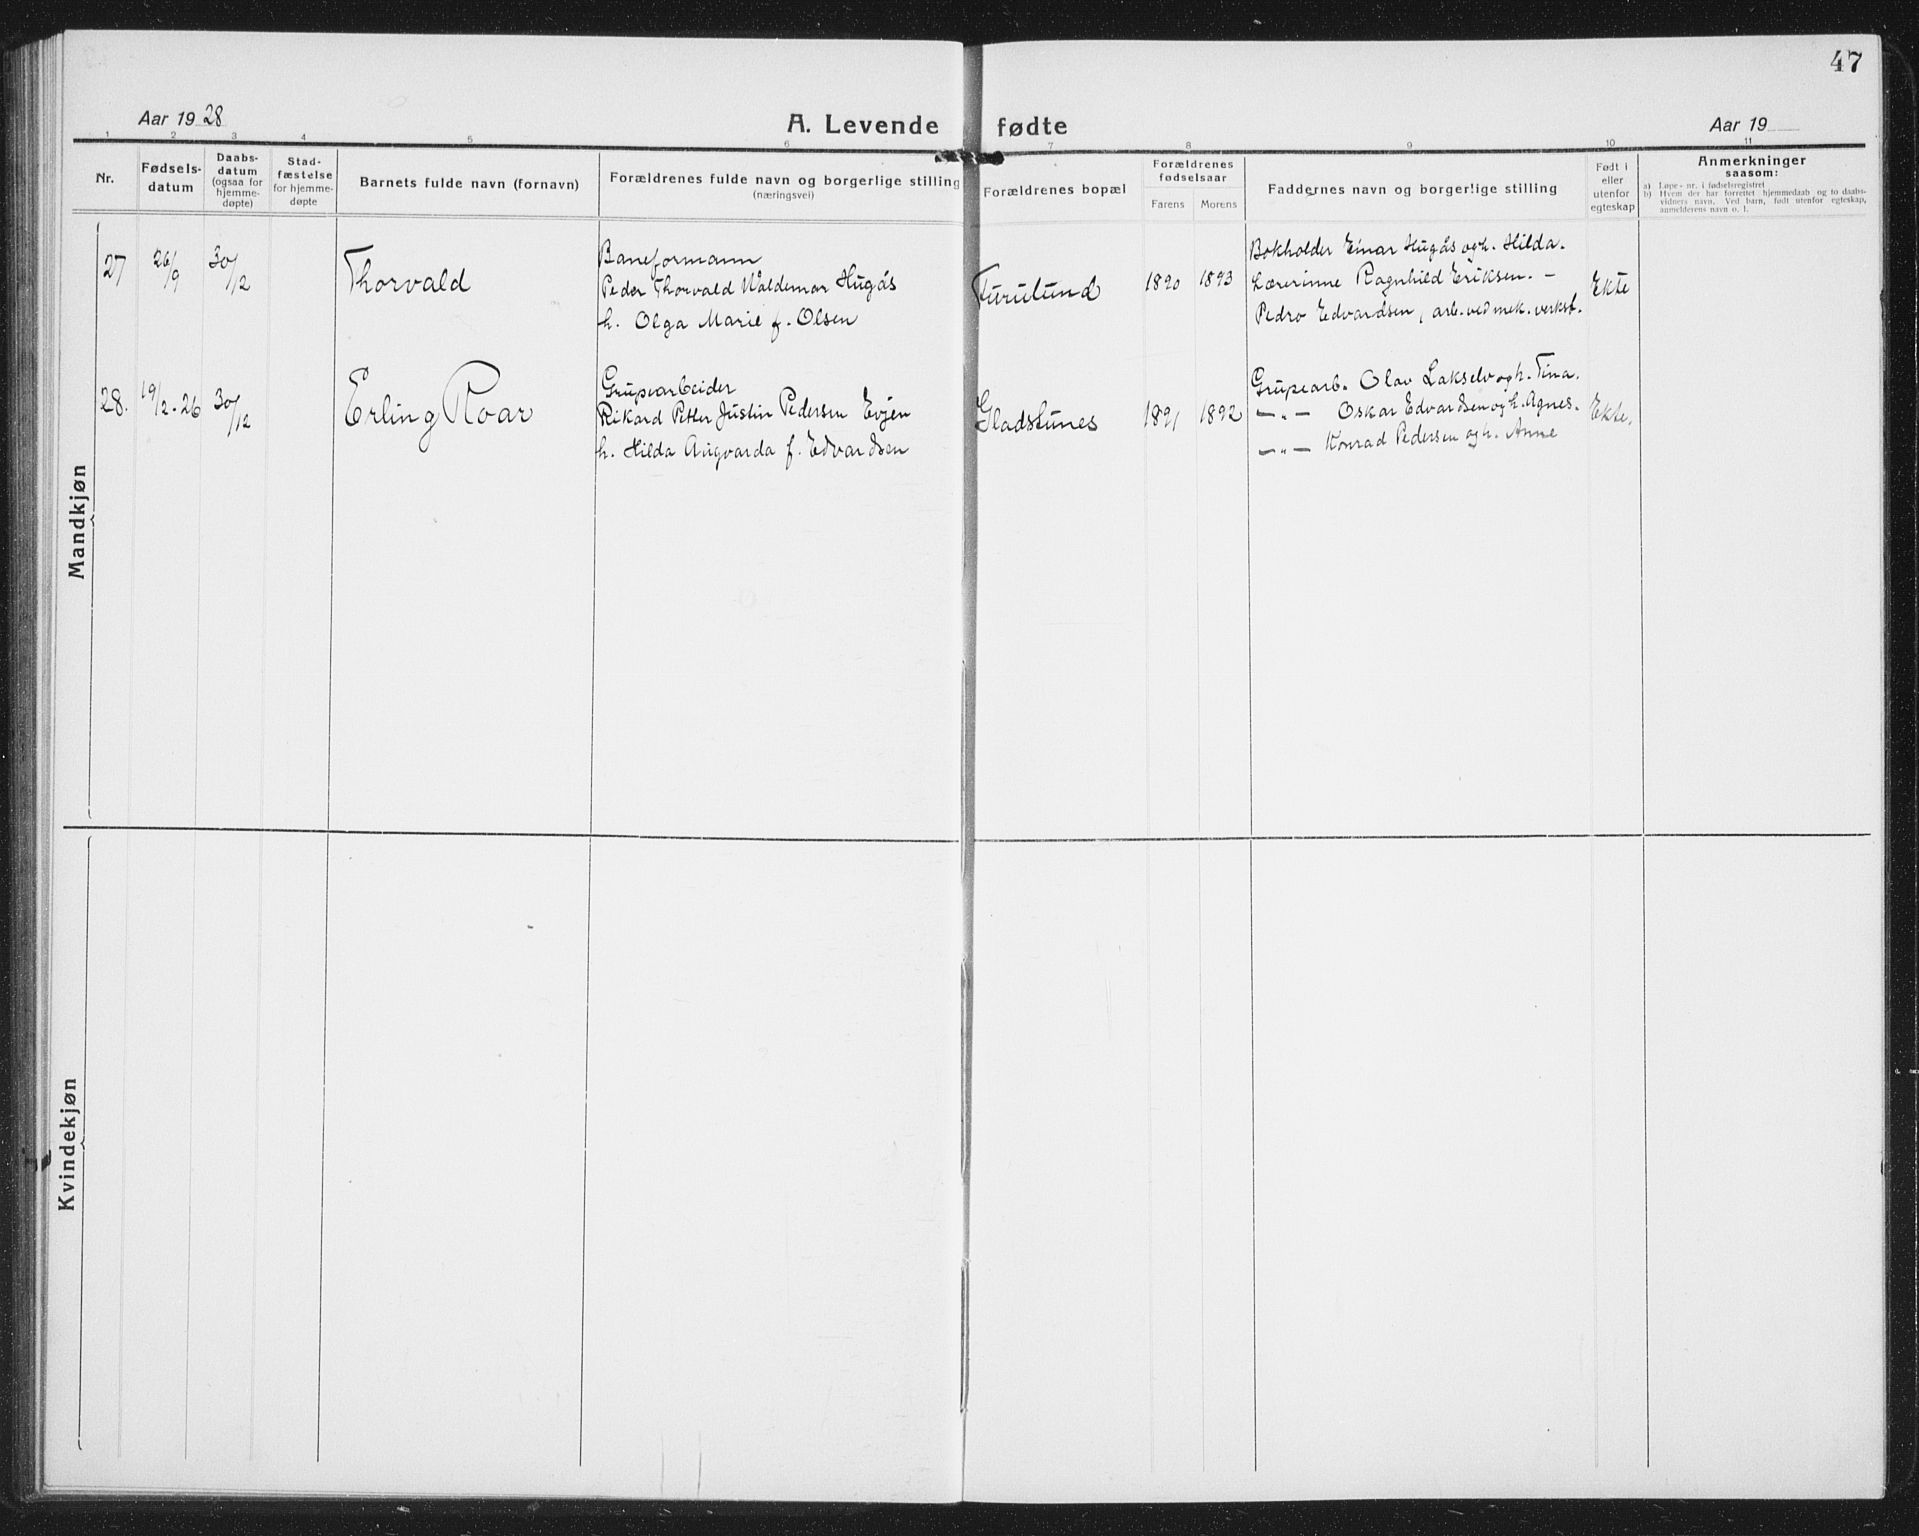 47
Aar 1928
A. Levende fødte
Aar 19
1 2 3 4 5 6 7 8 9 10 11
Nr.
Fødsels-
datum
Daabs-
datum
(ogsaa for
hjemme-
døpte)
Stad-
fæstelse
for hjemme-
døpte
Barnets fulde navn (fornavn)
Forældrenes fulde navn og borgerlige stilling
(næringsvei)
Forældrenes bopæl
Forældrenes
fødselsaar
Farens Morens
Faddernes navn og borgerlige stilling
Født i
eller
utenfor
egteskap
Anmerkninger
saasom:
a) Løpe-nr. i fødselsregistret
b) Hvem der har forrettet hjemmedaab og to daabs-
vidners navn. Ved barn, født utenfor egteskap,
anmelderens navn o. l.
Mandkjøn
27
26/9
30/12
Thorvald
Baneformann
Peder Thorvald Waldemar Hugås
h. Olga Marie f. Olsen
Furulund
1890
1893
Bokholder Einar Hugås og h. Hilda.
Lærerinne Ragnhild Eriksen. –
Pedro Edvardsen, arb. ved mek. verkst.
Ekte
28.
19/2 - 26
30/12
Erling Roar
Grupearbeider
Rikard Petter Justin Pedersen Evjen
h. Hilda Augvarda f. Edvardsen
Gladstunes
1891
1892
Grupearb. Olav Lakselv og h. Tina.
— " — Oskar Edvardsen og h. Agnes.
— " — Konrad Pedersen og h. Anne
Ekte.
Kvindekjøn